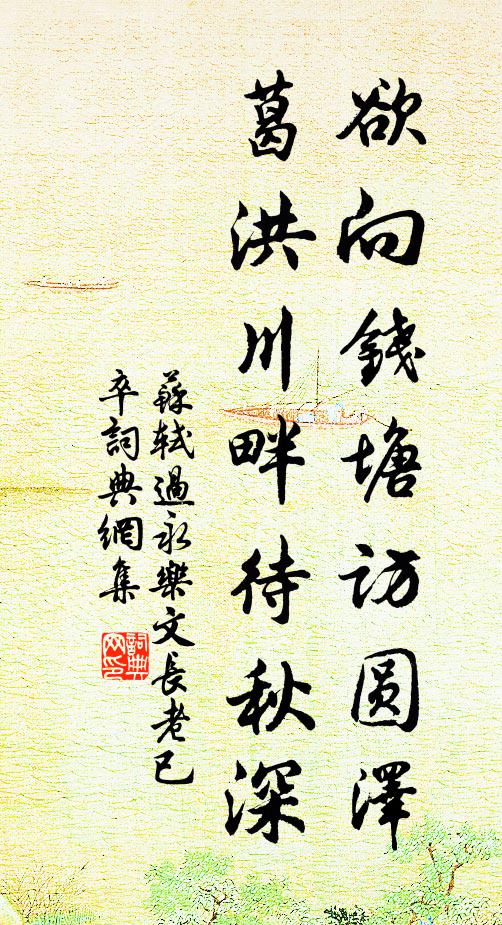 欲向錢塘訪圓澤
葛洪川畔待秋深
蘇軾過永樂文長老已
卒詞典網集
詞典網印